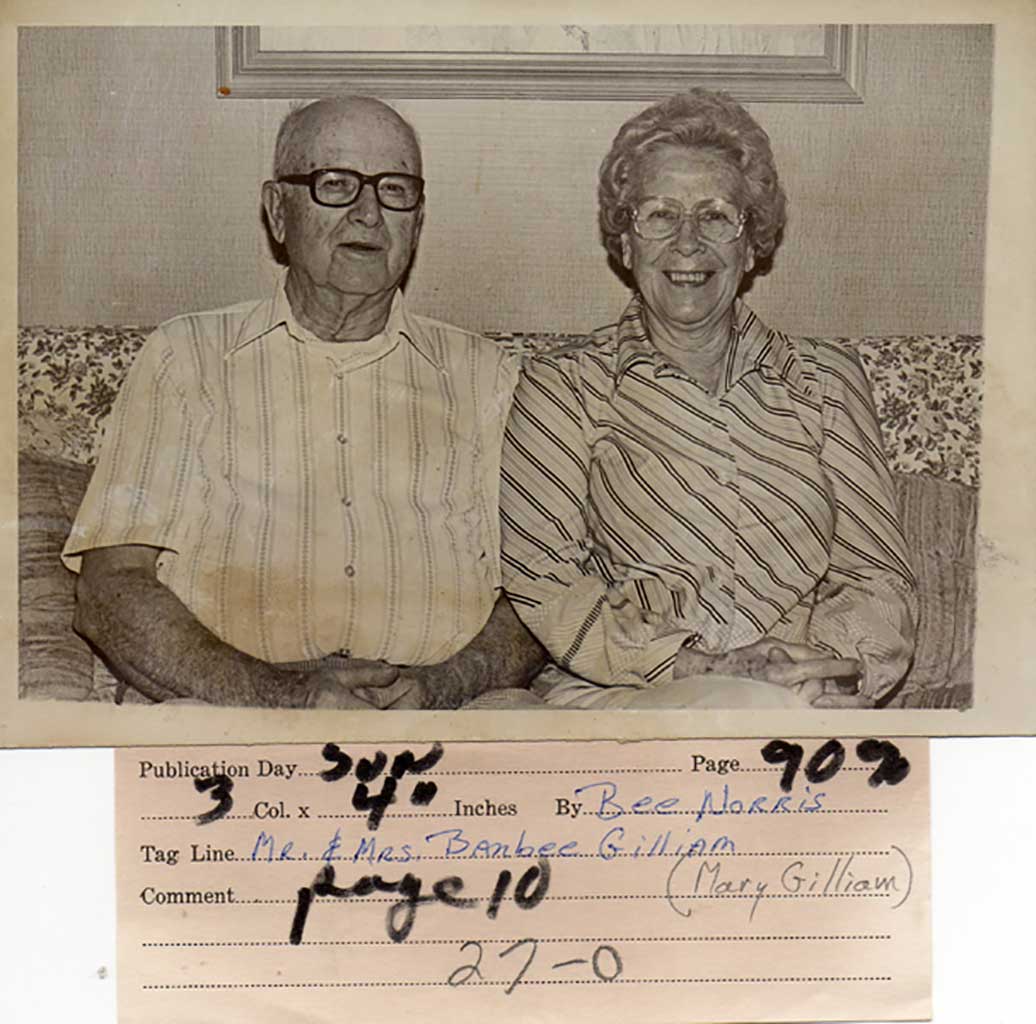 Publication Day Sun Page 90%
3 Col. x 4" Inches By Bee Norris
Tag Line Mr. & Mrs. Banbee Gilliam
Comment page 10 (Mary Gilliam)
27-0